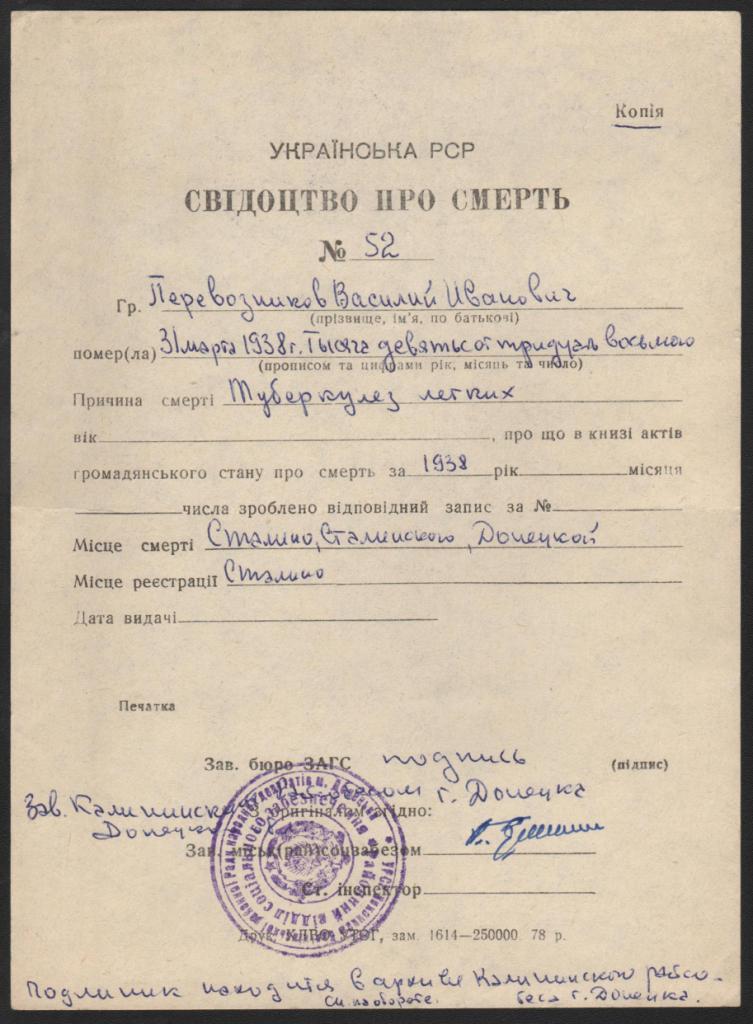 Копія
УКРАЇНСЬКА РСР
СВІДОЦТВО ПРО СМЕРТЬ
№ 52
Гр. Перевозников Василий Иванович
(прізвище, ім'я, по батькові)
помер(ла) 31 марта 1938 г. Тысяча девятьсот тридцать восьмого
(прописом та цифрами рік, місяць та число)
Причина смерті Туберкулез легких
вік , про що в книзі актів
громадянського стану про смерть за 1938 рік місяця
числа зроблено відповідний запис за №
Місце смерті Сталино, Сталинского, Донецкой
Місце реєстрації Сталино
Дата видачі
Печатка
Зав. бюро ЗАГС подпись (підпис)
Зав. г. Донецка
З оригіналом згідно:
Зав. міськ(рай)соцзабезом
Ст. інспектор
Друк. КЛВО УТОГ, зам. 1614—250000 78 р.
Подлинник находится в архиве Калининского райсо-
беса г. Донецка.
См. на обороте.